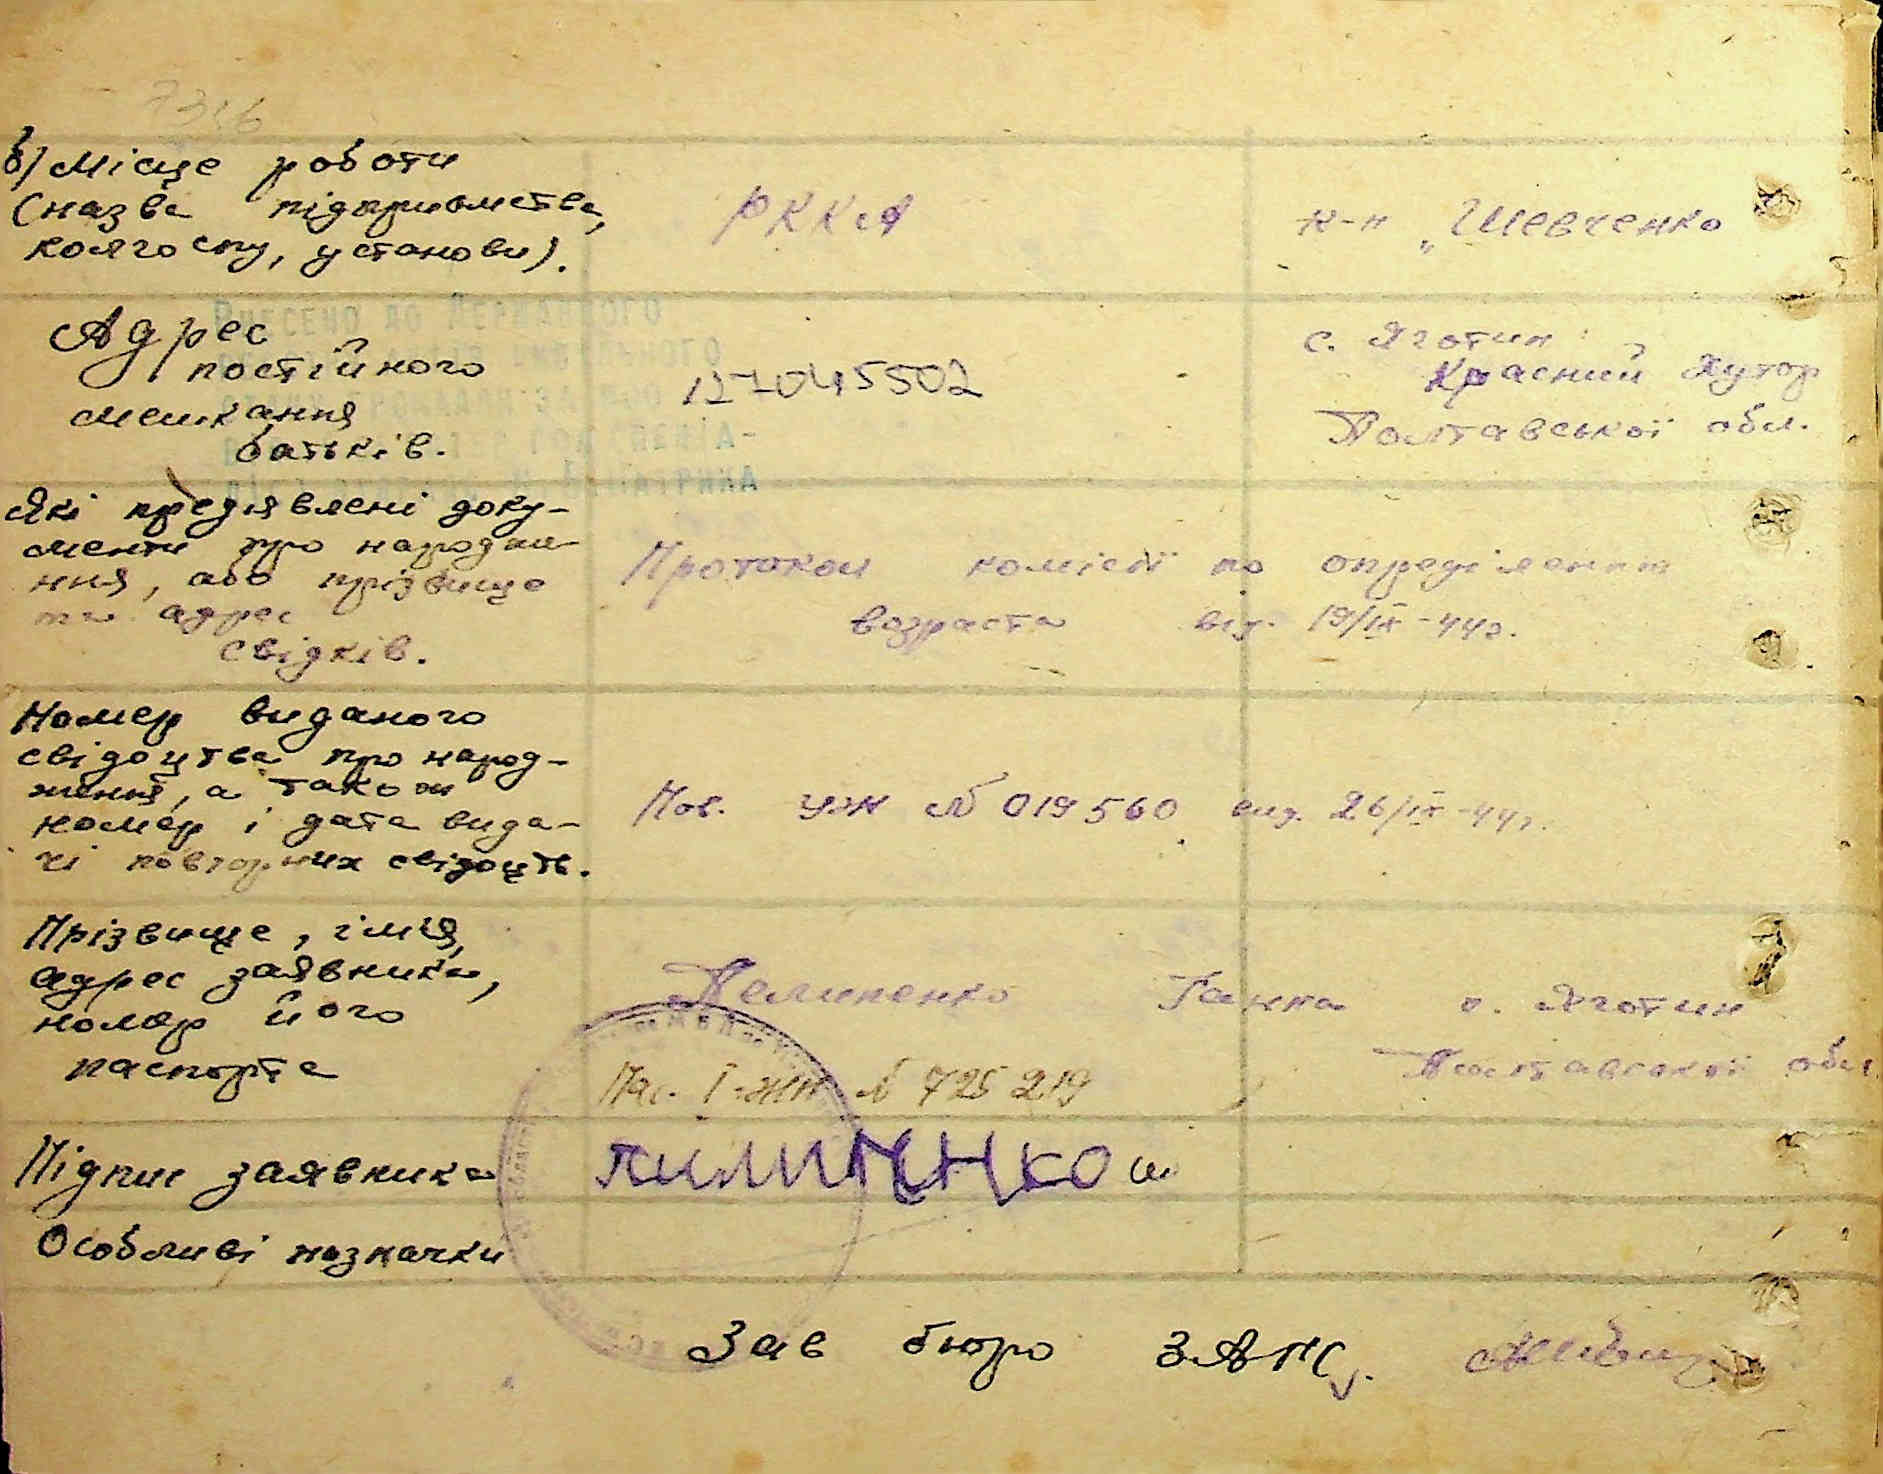 7316
б) Місце роботи
(назва підприємства,
колгоспу, установи).
РККА
к-п „Шевченко
Адрес
постійного
мешкання
батьків.
Внесено до Державного
127045502
с. Яготин
Красний Хутор
Полтавської обл.
Які предіявлені доку-
менти про народже-
ння, або прізвище
та адрес
свідків.
Протокол комісії по определению
возраста від. 19/IX-44г.
Номер виданого
свідоцтва про народ-
ження, а також
номер і дата вида-
чі повторних свідоцтв.
Пов. УЖ № 019560 вид. 26/IX-44г.
Прізвище, імія,
адрес заявника,
номер його
паспорта
Пелипенко Ганна с. Яготин
Полтавської обл
Пас. І-жш № 725219
Підпис заявника
пилипенко
Особливі позначки
Зав бюро ЗАГС